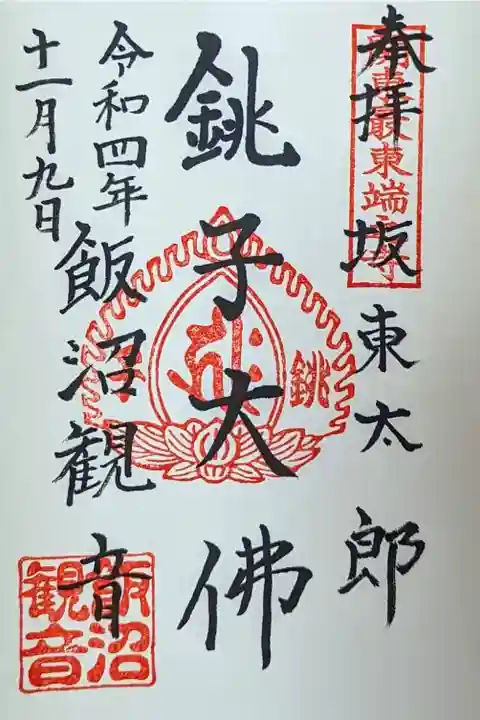 奉拝
坂東太郎
関東最東端
銚子大佛
銚子
飯沼観音
令和四年
十一月九日
飯沼
観音